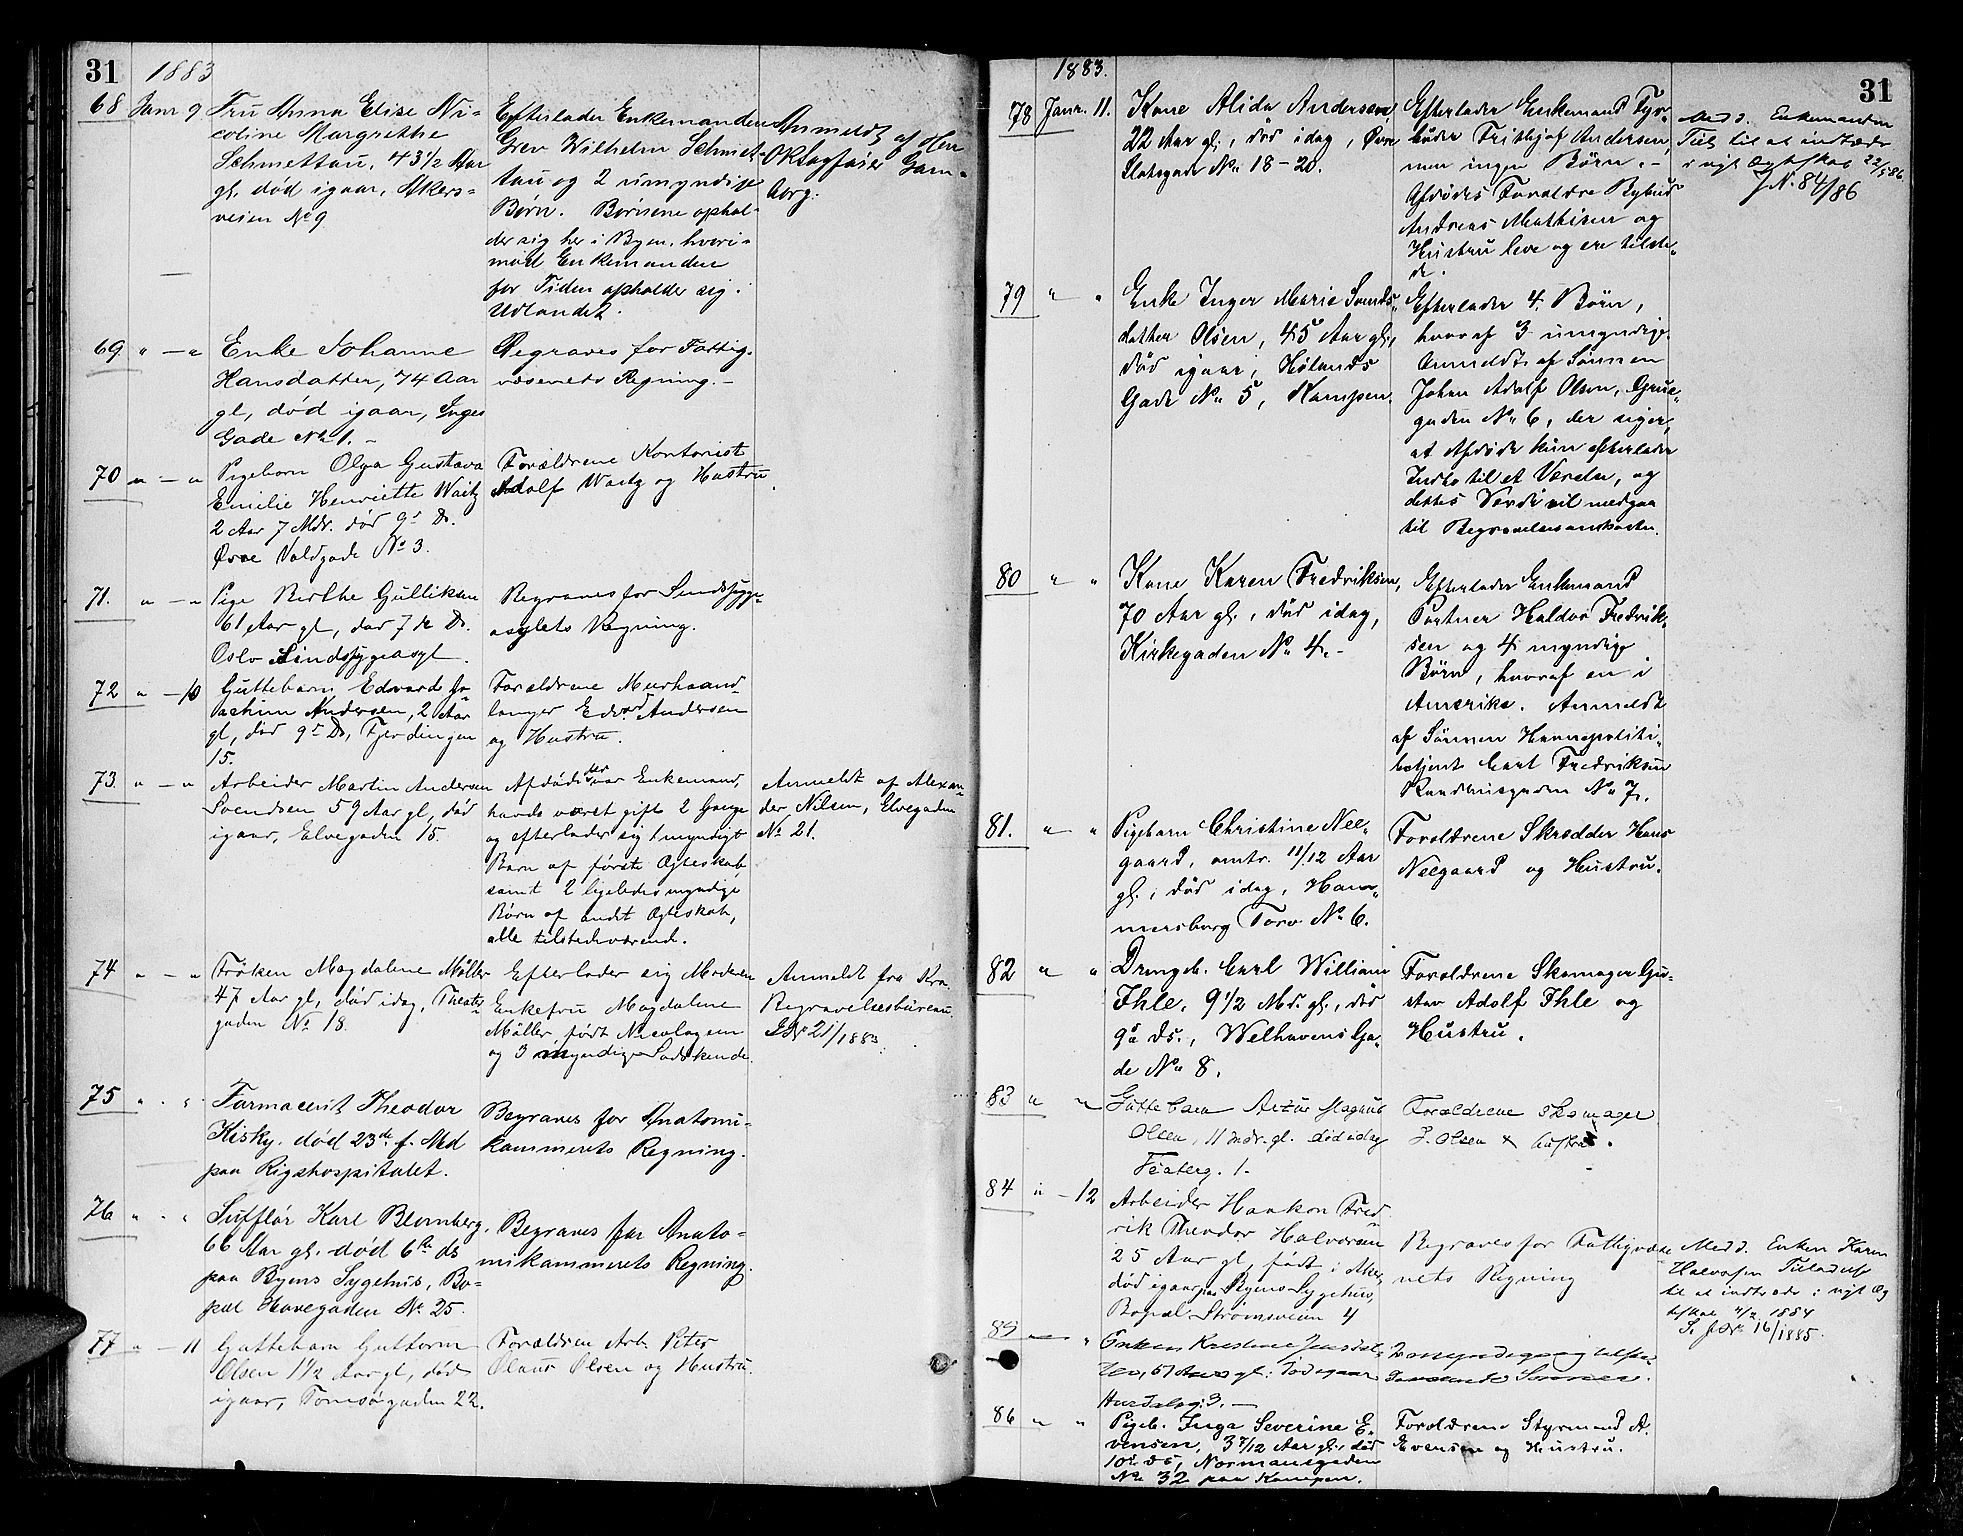 31 1883
68 Janr 9 Fru Anna Elise Ni-
coline Margrethe
Schmettau, 43 1/2 Aar
gl, død igaar, Akers-
veien No 9
Efterlader Enkemanden
Grev Wilhelm Schmet-
tau og 2 umyndige
Børn. Børnene ophol-
der sig her i Byen, hvori-
mod Enkemanden
for Tiden opholder sig i
Udlandet.
Anmeldt af Herr
Gam-
borg.
69 " — " Enke Johanne
Hansdatter, 74 Aar
gl, død igaar, Enges
Gade No 1. -
Begraves for Fattig-
væsenets Regning. -
70 " — " Pigebarn Olga Gustava
Emilie Henriette Waitz
2 Aar 7 Mdr. død 9s Ds.
Øvre Voldgade No 3.
Forældrene Kontorist
Adolf Waitz og Hustru.
71. " — " Pige Berthe Gulliksen
61 Aar gl, død 7de Ds.
Oslo Sindssygeasyl.
Begraves for Sindssyge-
asylets Regning.
72 " — 10 Guttebarn Edvard Jo-
achim Andersen, 2 Aar
gl, død 9s Ds, Fjerdingen
15.
Forældrene Murhaand-
langer Edvard Andersen
og Hustru.
73. " — " Arbeider Martin Andersen
Svendsen 59 Aar gl, død
igaar, Elvegaden 15.
Afdøde, der var Enkemand,
havde været gift 2 Gange
og efterlader sig 1 myndigt
Barn af første Ægteskab,
samt 2 ligeledes myndige
Børn af andet Ægteskab,
alle tilstedeværende.
Anmeldt af Alexan-
der Nilsen, Elvegaden
No 21.
74 " — " Frøken Magdalene Møller
47 Aar gl, død idag, Theater-
gaden No 18.
Efterlader sig Moderen
Enkefru Magdalene
Møller, født Nicolaysen
og 3 myndige Sødskende.
Anmeldt fra Kra
Begravelsesbureau.
21/1883.
75 " . " Farmaceut Theodor
Kisky. død 23de f. Md
paa Rigshospitalet.
Begraves for Anatomi-
kammerets Regning.
76 " . " Sufflør Karl Blomberg,
66 Aar gl. død 6te ds
paa Byens Sygehus, Bo-
pæl Havegaden No 25.
Begraves for Anato-
mikammerets Regning.
77 " — 11 Guttebarn Guttorm
Olsen 1 1/2 Aar gl, død
igaar, Tomsøgaden 22.
Forældren Arb. Peter
Olaus Olsen og Hustru.
1883. 31
78 Janr. 11. Kone Alida Andersen
22 Aar gl., død idag, Øvre
Slotsgade No 18-20.
Efterlader Enkemand Fyr-
bøder Frithjof Andersen,
men ingen Børn. -
Afdødes Forældre Bybud
Andreas Mathisen og
Hustru leve og ere tilste-
de.
Medd. Enkemanden
Till. til at indtræde
i nyt Ægteskab 22/5 86
J.N. 84/86
79 " — " Enke Inger Marie Svends-
datter Olsen, 45 Aar gl.,
død igaar, Hølands
Gade No 5, Kampen.
Efterlader 4 Børn,
hvoraf 3 umyndige.
Anmeldt af Sønnen
Johan Adolf Olsen, Grue-
gaden No 6, der siger,
at Afdøde kun efterlader
Indbo til et Værelse, og
dettes Værdi vil medgaa
til Begravelsesomkostn.
80 " " Kone Karen Fredriksen,
70 Aar gl., død idag,
Kirkegaden No 4. -
Efterlader Enkemand
Portner Haldor Fredrik-
sen og 4 myndige
Børn, hvoraf en i
Amerika. Anmeldt
af Sønnen Havnepoliti-
betjent Carl Fredriksen
Raadhusgaden No 7.
81. " — " Pigebarn Christine Nee-
gaard, omtr. 11/12 Aar
gl., død idag, Ham-
mersborg Torv No 6.
Forældrene Skrædder Hans
Neegaard og Hustru.
82 " " Drengeb. Carl William
Ihle, 9 1/2 Md. gl., død
9s ds., Welhavens Ga-
de No 8.
Forældrene Skomager Gu-
stav Adolf Ihle og
Hustru.
83 " " Guttebarn Artur Magnus
Olsen, 11 mdr. gl. død idag
Teaterg. 1.
Forældrene skomager
J. Olsen & hustru.
84 " — 12 Arbeider Haakon Fred-
rik Theodor Halvorsen
25 Aar gl, født i Aker,
død igaar paa Byens Sygehus,
Bopæl Strømsveien 4
Begraves for Fattigvæse-
nets Regning
Medd. Enken Karen
Halvorsen Tilladelse
til at indtræde i nyt Æg-
teskab 4/2 1884
16/1885.
85 — " Enken Kristine Jensdat-
ter, 51 Aar gl. død igaar
Hurdalsg. 3. —
2 myndige og tilste-
deværende Sønner.
86 " " Pigeb. Inga Severine E-
vensen, 3 7/12 Aar gl., død
10de ds, Normansgaden
No 32 paa Kampen.
Forældrene Styrmand A.
Evensen og Hustru.